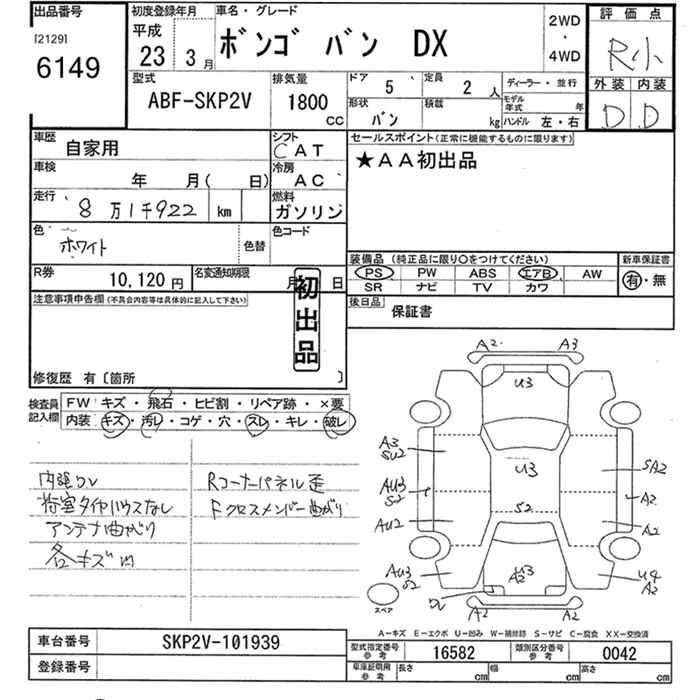 出品番号
[2129]
6149
初度登録年月
平成
23年 3月
車名・グレード
ボンゴ バン DX
2WD
・
4WD
評価点
R小
外装 内装
D D
型式
ABF-SKP2V
排気量
1800
CC
ドア 5
定員 2人
形状 バン
積載 kg
ディーラー・並行
モデル年式 年
ハンドル 左・右
車歴
自家用
シフト
CAT
車検
年 月( 日)
冷房
AC
走行
8万1千922 km
燃料
ガソリン
色
ホワイト
色替
色コード
R券
10,120円
名変通知期限
月 日
セールスポイント(正常に機能するものに限ります)
★AA初出品
装備品(純正品に限り○をつけてください)
PS PW ABS エアB AW
SR ナビ TV カワ
新車保証書
有・無
後日品
保証書
注意事項申告欄(不具合内容等は具体的に記入して下さい)
初出品
修復歴 有〔箇所 〕
検査員記入欄
FW キズ・飛石・ヒビ割・リペア跡・×要
内装 キズ・汚レ・コゲ・穴・スレ・キレ・破レ
内張ワレ
荷室タイヤハウスなし
アンテナ曲がり
各キズ凹
Rコーナーパネル歪
Fクロスメンバー曲がり
A2 A3
U3
A3
SU2
U3
SA2
AU3
S2
A2
S2
AU2
A2
AU3
S2
U3
A2
U4
A2
A2 A2
スペア
A-キズ E-エクボ U-凹み W-補修跡 S-サビ C-腐食 XX-交換済
車台番号 SKP2V-101939
登録番号
型式指定番号
参考
16582
類別区分番号
参考
0042
車庫証明用
参考
長さ cm 幅 cm 高さ cm